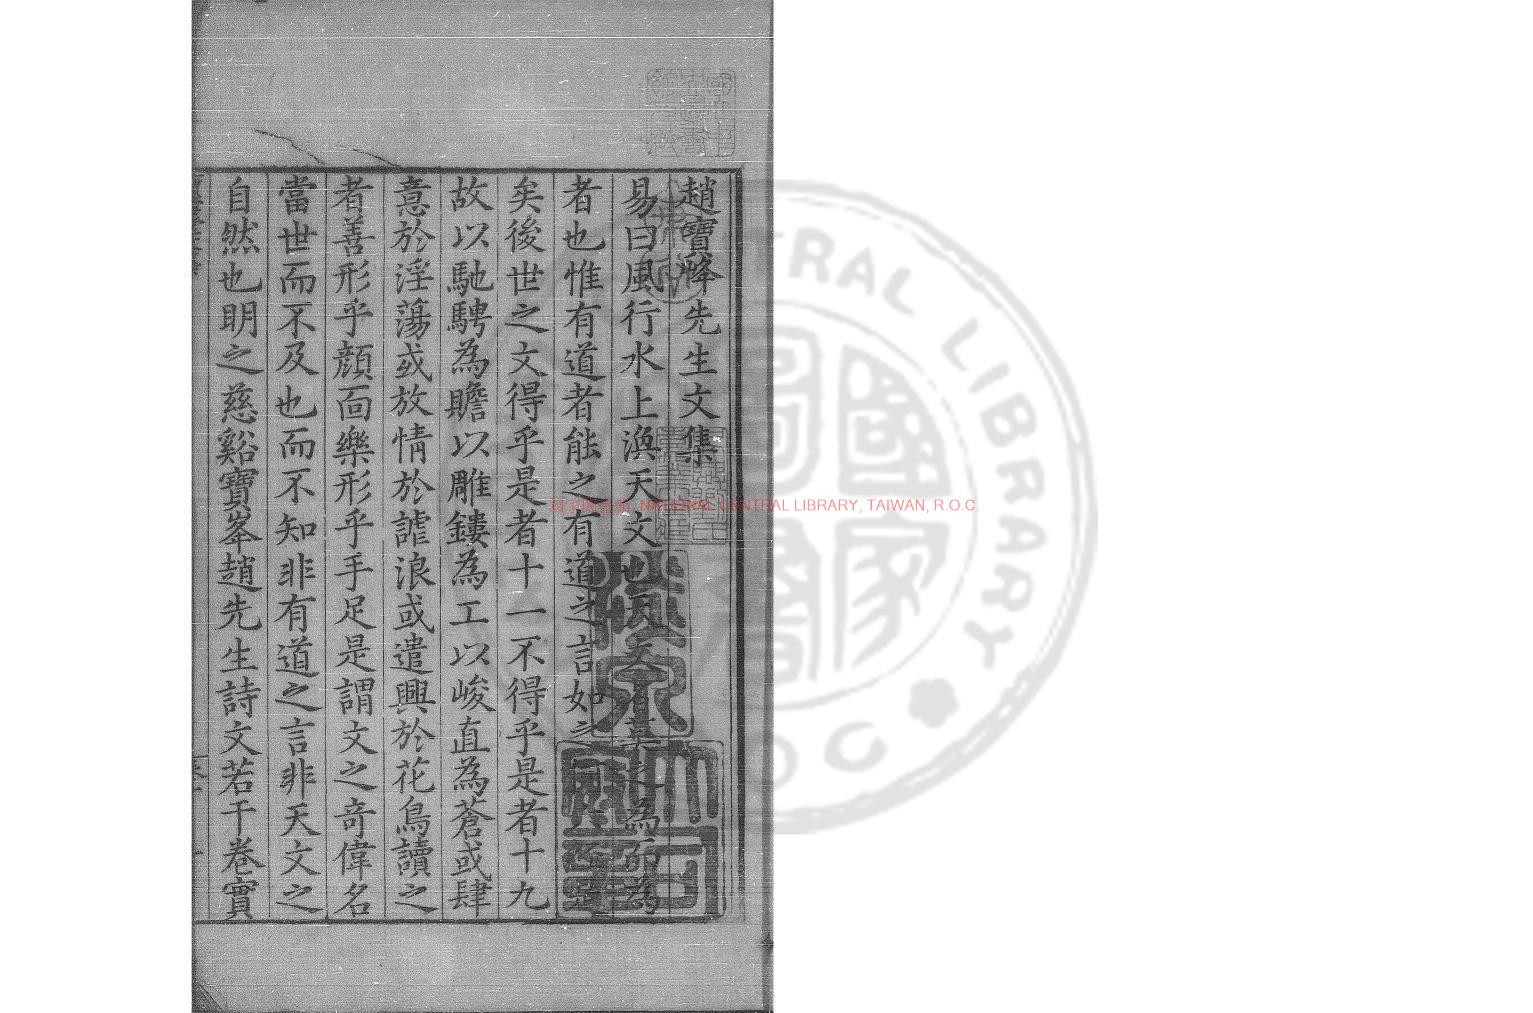 趙寶峰先生文集
易曰風行水上渙天文也天文者莫之為而為
者也惟有道者能之有道之言如之
矣後世之文得乎是者十一不得乎是者十九
故以馳騁為贍以雕鏤為工以峻直為蒼或肆
意於淫蕩或放情於謔浪或遣興於花鳥讀之
者善形乎顔面樂形乎手足是謂文之奇偉名
當世而不及也而不知非有道之言非天文之
自然也明之慈谿寶峯趙先生詩文若干卷實
NATIONAL CENTRAL LIBRARY, TAIWAN, R.O.C.
TRAL LIBRARY
OC
國家圖書館